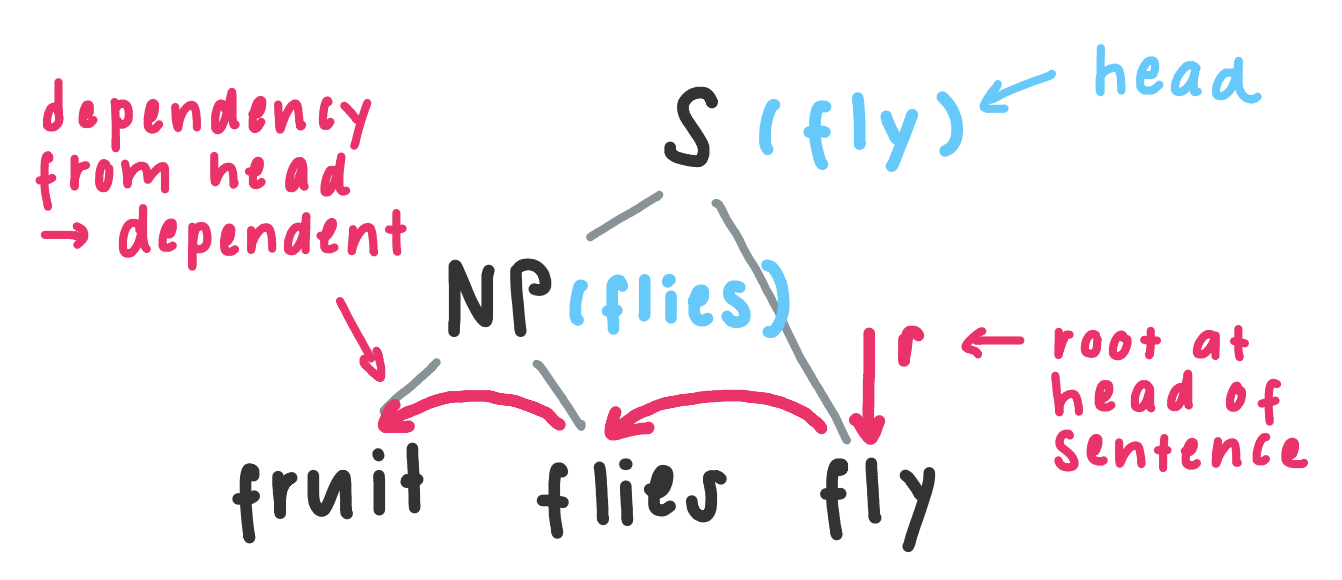 dependency
from head
→ dependent
S (fly) ← head
NP (flies)
r ← root at
head of
sentence
fruit flies fly